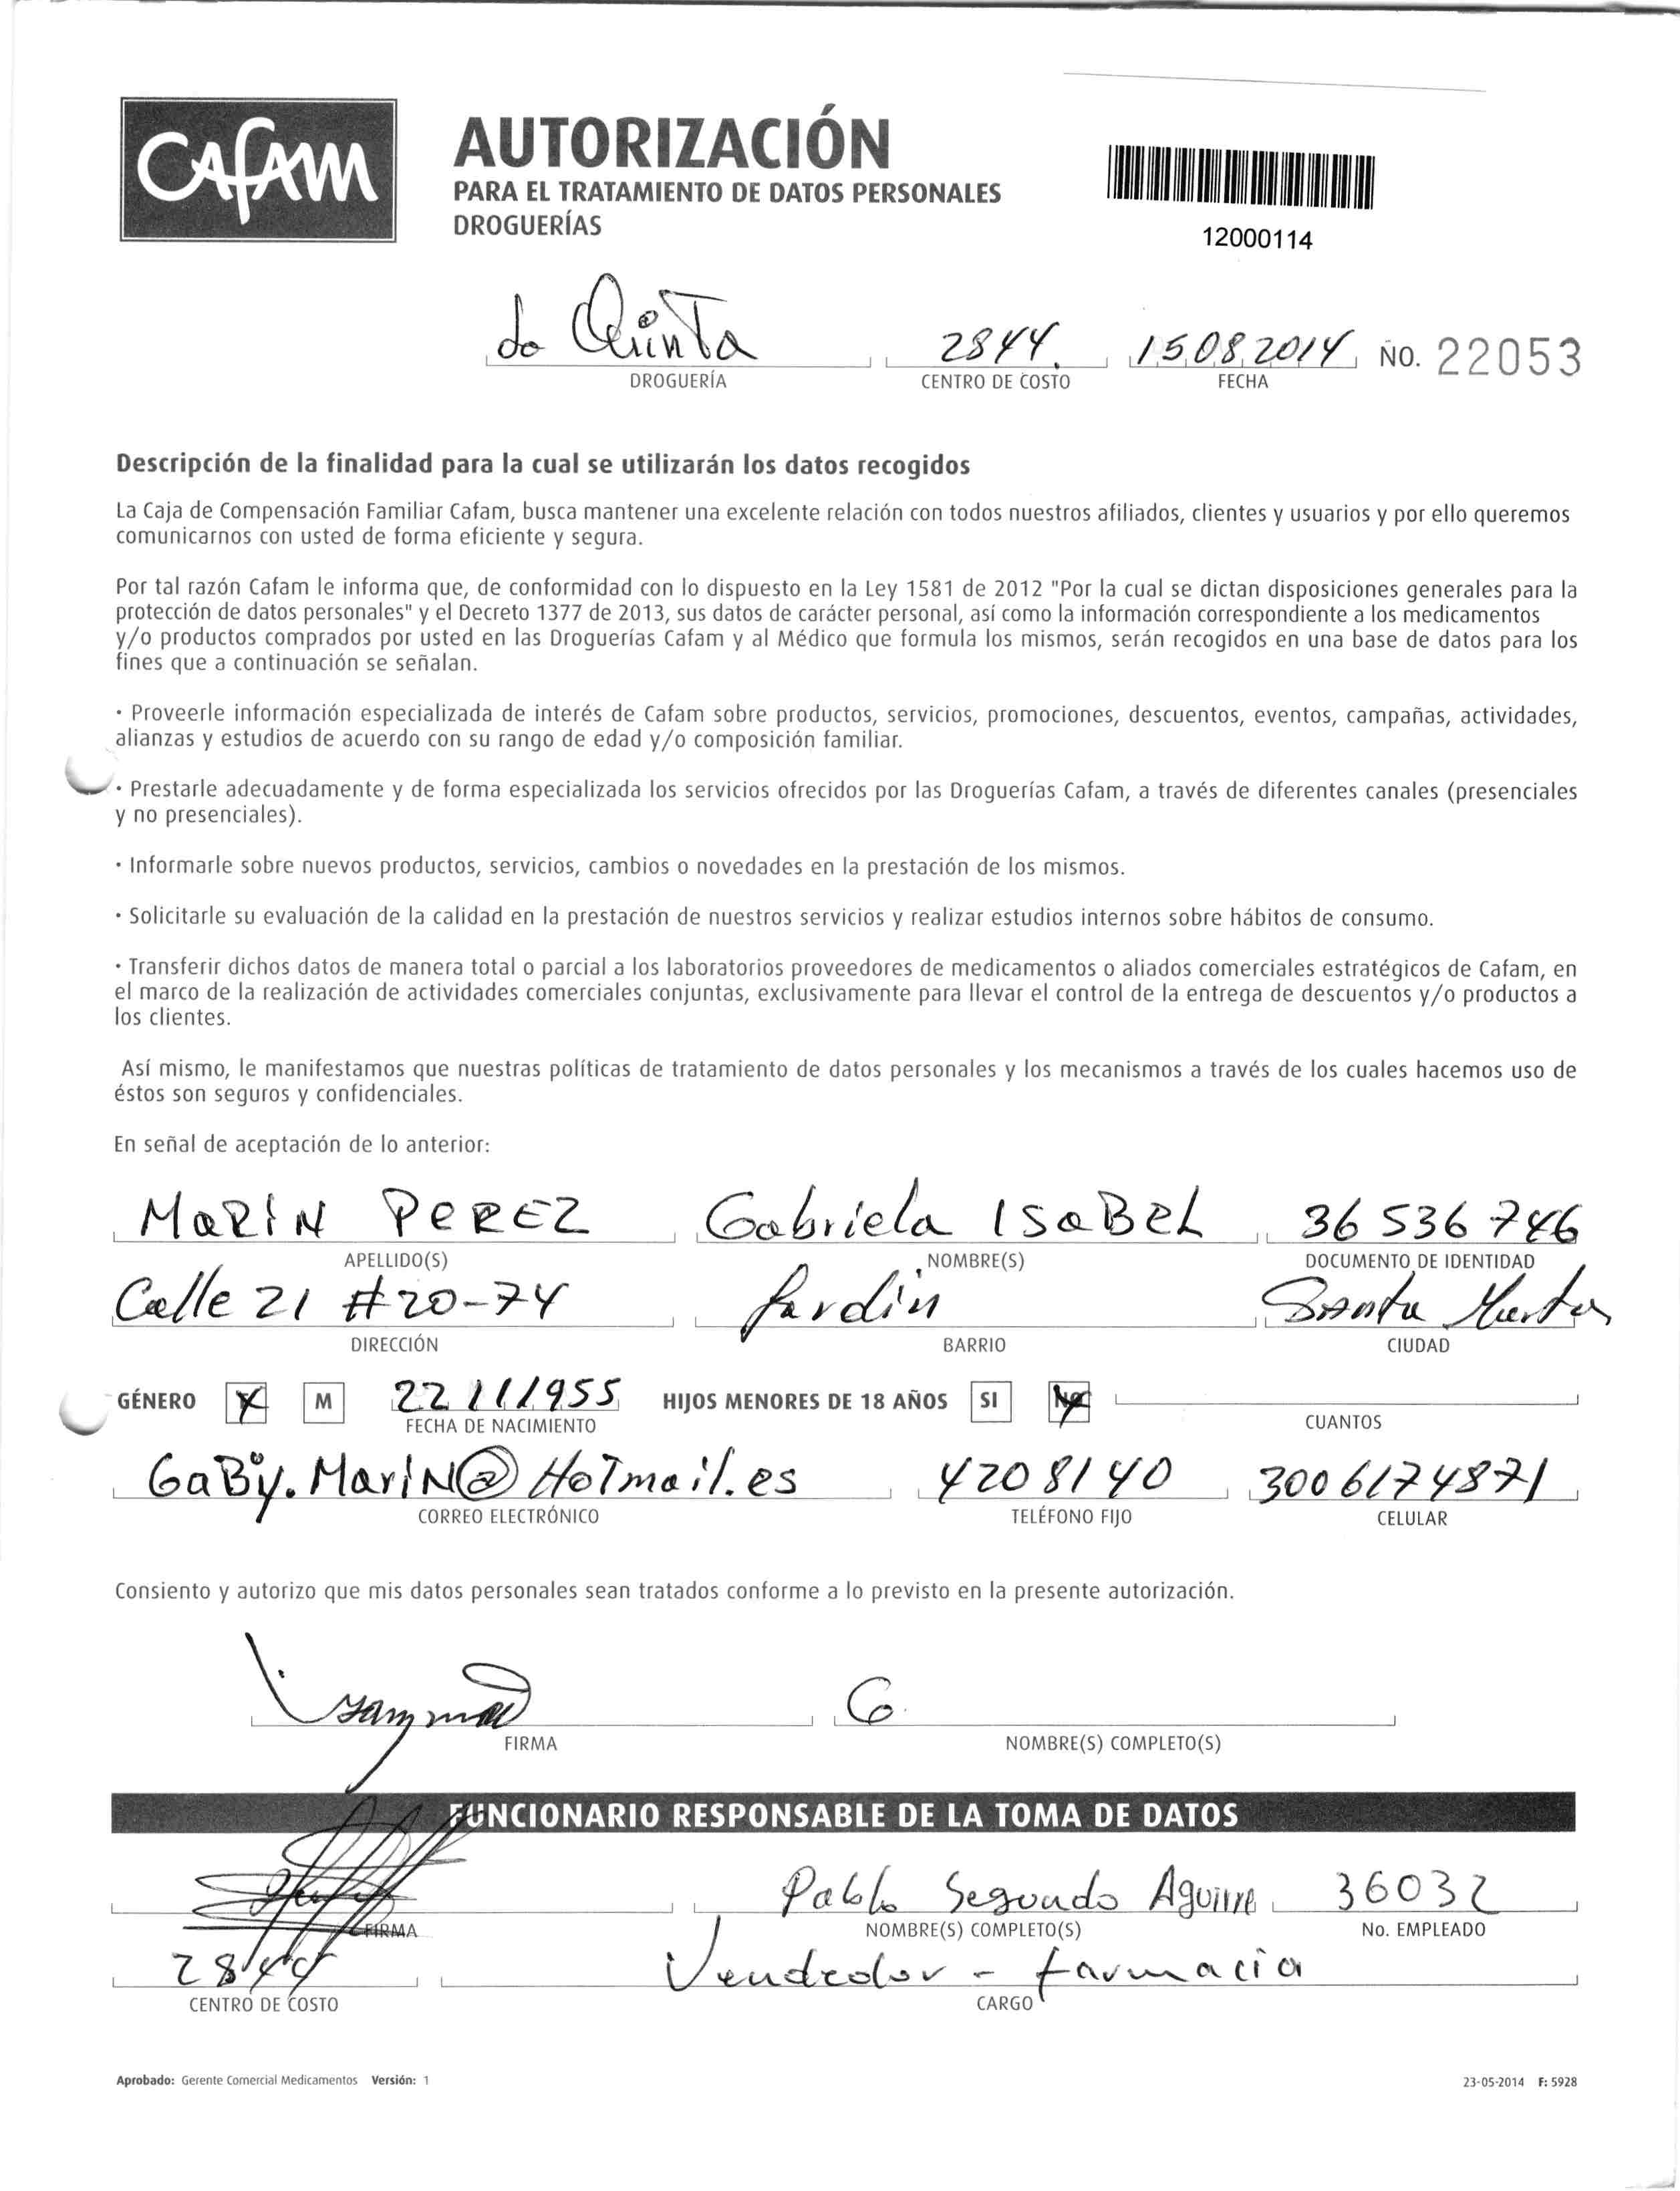 CAFAM
AUTORIZACIÓN
PARA EL TRATAMIENTO DE DATOS PERSONALES
DROGUERÍAS
12000114
La Quinta 2844. 15 08 2014 NO. 22053
DROGUERÍA CENTRO DE COSTO FECHA
Descripción de la finalidad para la cual se utilizarán los datos recogidos
La Caja de Compensación Familiar Cafam, busca mantener una excelente relación con todos nuestros afiliados, clientes y usuarios y por ello queremos
comunicarnos con usted de forma eficiente y segura.
Por tal razón Cafam le informa que, de conformidad con lo dispuesto en la Ley 1581 de 2012 "Por la cual se dictan disposiciones generales para la
protección de datos personales" y el Decreto 1377 de 2013, sus datos de carácter personal, así como la información correspondiente a los medicamentos
y/o productos comprados por usted en las Droguerías Cafam y al Médico que formula los mismos, serán recogidos en una base de datos para los
fines que a continuación se señalan.
· Proveerle información especializada de interés de Cafam sobre productos, servicios, promociones, descuentos, eventos, campañas, actividades,
alianzas y estudios de acuerdo con su rango de edad y/o composición familiar.
· Prestarle adecuadamente y de forma especializada los servicios ofrecidos por las Droguerías Cafam, a través de diferentes canales (presenciales
y no presenciales).
· Informarle sobre nuevos productos, servicios, cambios o novedades en la prestación de los mismos.
· Solicitarle su evaluación de la calidad en la prestación de nuestros servicios y realizar estudios internos sobre hábitos de consumo.
· Transferir dichos datos de manera total o parcial a los laboratorios proveedores de medicamentos o aliados comerciales estratégicos de Cafam, en
el marco de la realización de actividades comerciales conjuntas, exclusivamente para llevar el control de la entrega de descuentos y/o productos a
los clientes.
Así mismo, le manifestamos que nuestras políticas de tratamiento de datos personales y los mecanismos a través de los cuales hacemos uso de
éstos son seguros y confidenciales.
En señal de aceptación de lo anterior:
MaRiN PeREZ Gabriela ISaBeL 36 536 746
APELLIDO(S) NOMBRE(S) DOCUMENTO DE IDENTIDAD
Calle 21 #20-74 Jardín Santa Marta
DIRECCIÓN BARRIO CIUDAD
GÉNERO X M 22 11 1955 HIJOS MENORES DE 18 AÑOS SI NO
FECHA DE NACIMIENTO CUANTOS
GaBy.MariN@HoTmail.es 4208140 3006174871
CORREO ELECTRÓNICO TELÉFONO FIJO CELULAR
Consiento y autorizo que mis datos personales sean tratados conforme a lo previsto en la presente autorización.
G
FIRMA NOMBRE(S) COMPLETO(S)
FUNCIONARIO RESPONSABLE DE LA TOMA DE DATOS
Pablo Segundo Aguirre 36032
FIRMA NOMBRE(S) COMPLETO(S) No. EMPLEADO
2844 Vendedor - farmacia
CENTRO DE COSTO CARGO
Aprobado: Gerente Comercial Medicamentos Versión: 1 23-05-2014 F: 5928